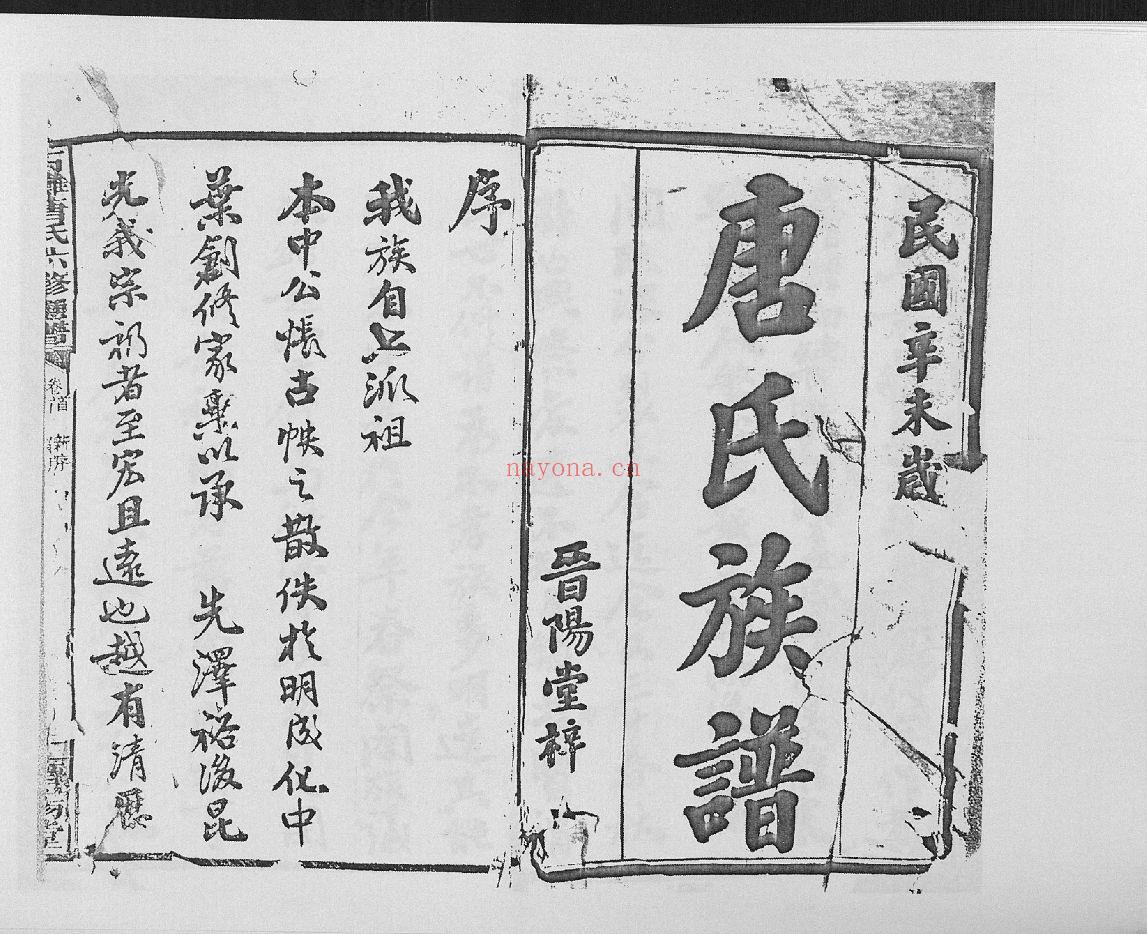 民國辛未歲
唐氏族譜
晉陽堂梓
序
我族自上派祖
本中公悵古帙之散佚於明成化中
葉創修家乘以承 先澤裕後昆
光義宗祊者至宏且遠也越有清歷
唐氏六修通譜 卷首 新序
nayona.cn